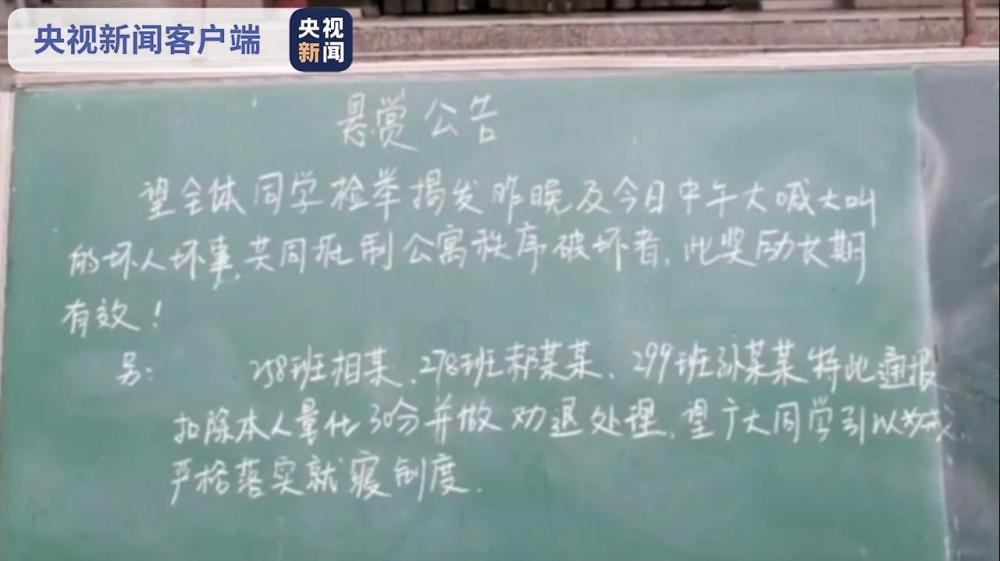 央视新闻客户端
央视
新闻
悬赏公告
望全体同学检举揭发昨晚及今日中午大喊大叫
的坏人坏事,共同抵制公寓秩序破坏者,此奖励长期
有效!
另: 258班相某、278班郝某某、299班孙某某特此通报
扣除本人量化30分并做劝退处理,望广大同学引以为戒,
严格落实就寝制度.